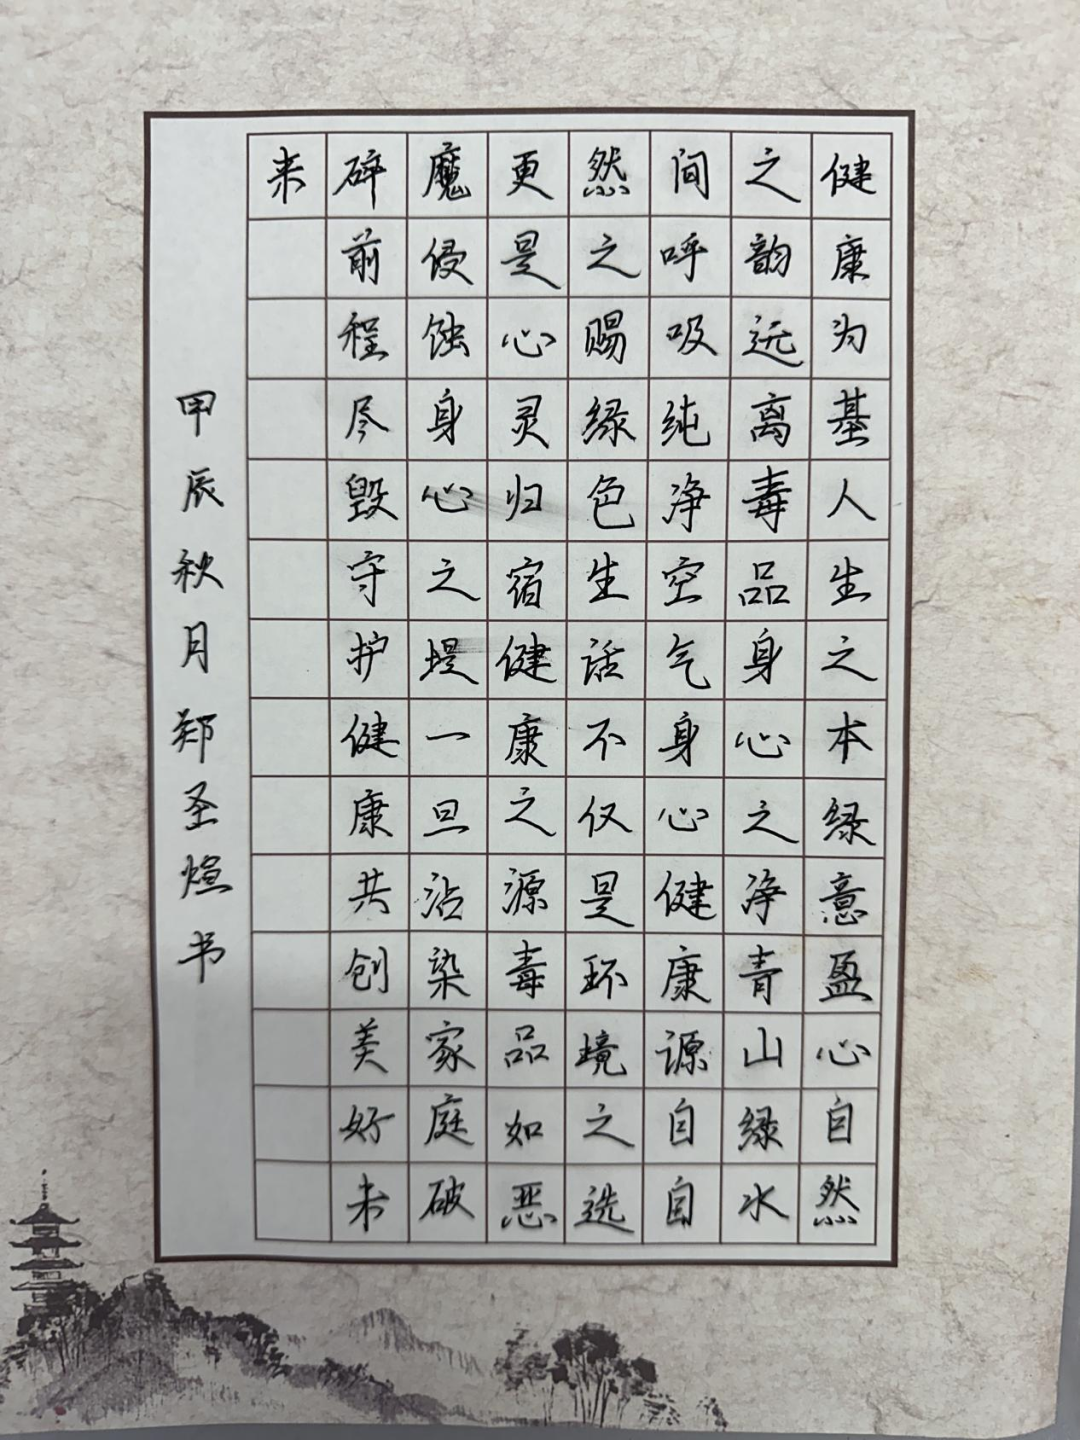 健康为基人生之本绿意盈心自然
之韵远离毒品身心之净青山绿水
间呼吸纯净空气身心健康源自自
然之赐绿色生活不仅是环境之选
更是心灵归宿健康之源毒品如恶
魔侵蚀身心之堤一旦沾染家庭破
碎前程尽毁守护健康共创美好未
来
甲辰秋月郑圣煊书